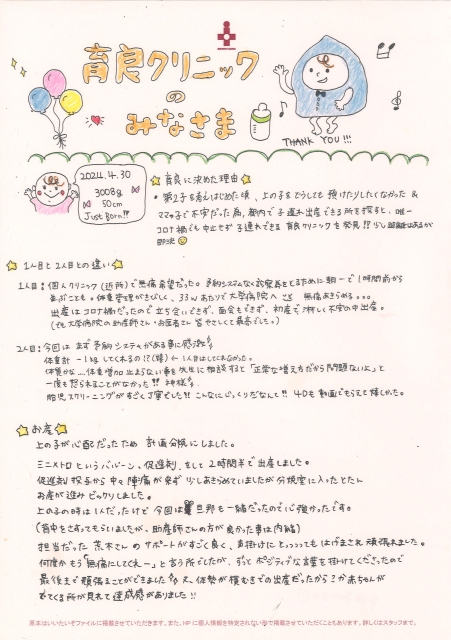 育良クリニック
の
みなさま
THANK YOU!!!
2024.4.30
3008g
50cm
Just Born!!
育良に決めた理由
・第2子を考えはじめた頃、上の子をどうしても預けたりしたくなかった &
ママっ子で不安だった為、都内で子連れ出産できる所を探すと、唯一
コロナ禍でも中止せず子連れできる育良クリニックを発見!! 少し距離はあるが
即決
1人目と2人目との違い
1人目:個人クリニック(近所)で無痛希望だった。予約システムなく診察券をとるために朝一で1時間前から
並ぶことも。体重管理がきびしく、33wあたりで大学病院へ 無痛あきらめる。。。
出産はコロナ禍だったので立ち会いできず、面会もできず、初産で淋しく不安の中出産。
(でも大学病院の助産師さん・お医者さん皆やさしくて最高でした。)
2人目:今回はまず予約システムがある事に感激
体重計 -1kgしてくれるの!?(嬉) ← 1人目はしてくれなかった。
体質かな…体重増加止まらない事を先生に相談すると「正常な増え方だから問題ないよ」と
一度も怒られることがなかった!! 神様
胎児スクリーニングがすごく丁寧でした!! こんなにじっくりだなんて!! 4Dも動画でもらえて嬉しかった。
お産
上の子が心配だったため 計画分娩にしました。
ミニメトロというバルーン、促進剤、そして2時間半で出産しました。
促進剤投与から中々陣痛が来ず少しあきらめていましたが分娩室に入ったとたん
お産が進みビックリしました。
上の子の時は1人だったけど今回は旦那も一緒だったので心強かったです。
(背中をさすってもらいましたが、助産師さんの方が良かった事は内緒)
担当だった荒木さんのサポートがすごく良く、声掛けにとっっっってもはげまされ頑張れました。
何度か もう「無痛にしてくれー」と言う所でしたが、ずっとポジティブな言葉を掛けてくださったので
最後まで頑張ることができました 又、体勢が横むきでの出産だったから?か赤ちゃんが
でてくる所が見れて達成感がありました!!
原本はいいたいぞファイルに掲載させていただきます。また、HPに個人情報を特定されない形で掲載させていただくこともあります。詳しくはスタッフまで。